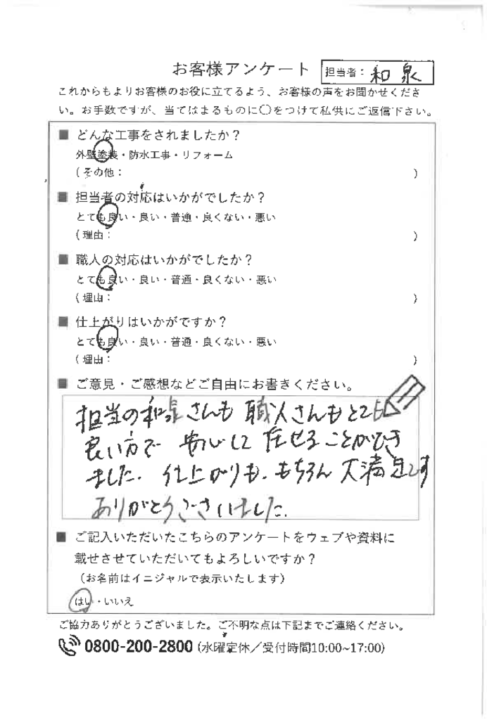 お客様アンケート 担当者: 和泉
これからもよりお客様のお役に立てるよう、お客様の声をお聞かせくださ
い。お手数ですが、当てはまるものに○をつけて私供にご返信下さい。
■ どんな工事をされましたか？
外壁塗装・防水工事・リフォーム
(その他： )
■ 担当者の対応はいかがでしたか？
とても良い・良い・普通・良くない・悪い
(理由： )
■ 職人の対応はいかがでしたか？
とても良い・良い・普通・良くない・悪い
(理由： )
■ 仕上がりはいかがですか？
とても良い・良い・普通・良くない・悪い
(理由： )
■ ご意見・ご感想などご自由にお書きください。
担当の和泉さんも 職人さんもとても
良い方で 安心して 任せることができ
ました. 仕上がりも、もちろん 大満足です
ありがとうございました.
■ ご記入いただいたこちらのアンケートをウェブや資料に
載せさせていただいてもよろしいですか？
(お名前はイニシャルで表示いたします)
はい・いいえ
ご協力ありがとうございました。ご不明な点は下記までご連絡ください。
0800-200-2800 (水曜定休／受付時間10:00~17:00)